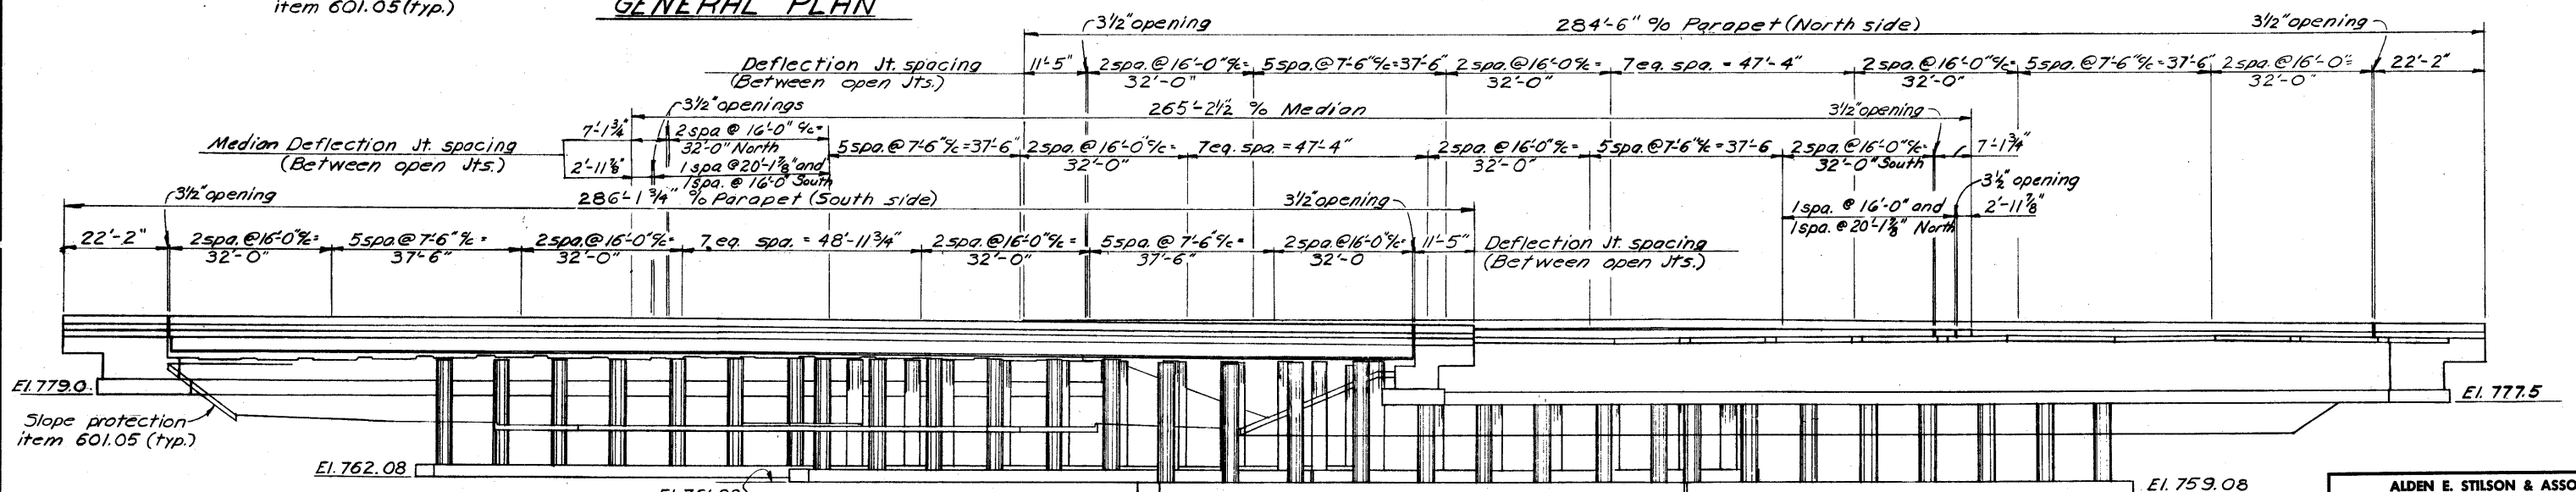 item 601.05 (typ.)
GENERAL PLAN
3½" opening
284'-6" % Parapet (North side)
3½" opening
Deflection Jt. spacing
(Between open Jts.)
11'-5"
2 spa. @ 16'-0" % =
32'-0"
5 spa. @ 7'-6" % = 37'-6"
2 spa. @ 16'-0 % =
32'-0"
7 eq. spa. = 47'-4"
2 spa. @ 16'-0" % =
32'-0"
5 spa. @ 7'-6" % = 37'-6"
2 spa. @ 16'-0 =
32'-0"
22'-2"
3½" openings
265'-2½ % Median
3½" opening
Median Deflection Jt. spacing
(Between open Jts.)
7'-1¾"
2'-11⅞"
2 spa @ 16'-0" % =
32'-0" North
1 spa @ 20'-1⅞" and
1 spa. @ 16'-0" South
5 spa. @ 7'-6" % = 37'-6"
2 spa. @ 16'-0" % =
32'-0"
7 eq. spa. = 47'-4"
2 spa. @ 16'-0" % =
32'-0"
5 spa. @ 7'-6" % = 37'-6
2 spa. @ 16'-0" % =
32'-0" South
7'-1¾"
3½" opening
1 spa. @ 16'-0" and
1 spa. @ 20'-1⅞" North
2'-11⅞"
3½" opening
286'-1¾" % Parapet (South side)
3½" opening
22'-2"
2 spa. @ 16'-0" % =
32'-0"
5 spa @ 7'-6" % =
37'-6"
2 spa. @ 16'-0" % =
32'-0"
7 eq. spa. = 48'-11¾"
2 spa. @ 16'-0" % =
32'-0"
5 spa. @ 7'-6" % =
37'-6"
2 spa. @ 16'-0" % =
32'-0
11'-5"
Deflection Jt. spacing
(Between open Jts.)
El. 779.0
Slope protection
item 601.05 (typ.)
El. 762.08
El. 777.5
El. 759.08
ALDEN E. STILSON & ASSO